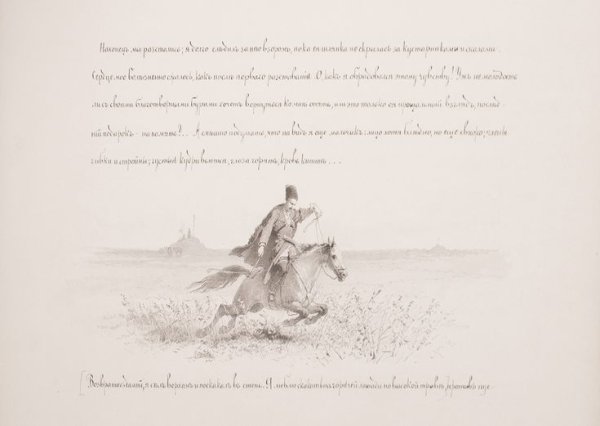 Наконецъ мы разстались; я долго слѣдилъ за нею взоромъ, пока ея шляпка не скрылась за кустарниками и скалами.
Сердце мое болѣзненно сжалось, какъ послѣ перваго разставанія. О, какъ я обрадовался этому чувству! Ужъ не молодость
ли съ своими благотворными бурями хочетъ вернуться ко мнѣ опять, или это только ея прощальный взглядъ, послѣд-
ній подарокъ - на память?... А смѣшно подумать, что на видъ я еще мальчикъ: лицо хотя блѣдно, но еще свѣжо; члены
гибки и стройны; густыя кудри вьются, глаза горятъ, кровь кипитъ...
Возвратясь домой, я сѣлъ верхомъ и поскакалъ въ степь. Я люблю скакать на горячей лошади по высокой травѣ, противъ